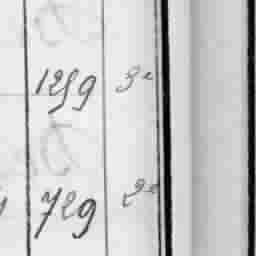 1259 3e
729 2e